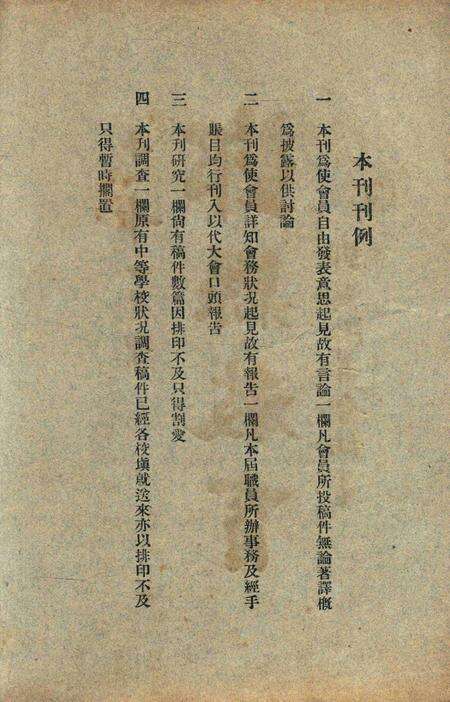 本刊刊例
一 本刊爲使會員自由發表意思起見故有言論一欄凡會員所投稿件無論著譯槪
爲披露以供討論
二 本刊爲使會員詳知會務狀况起見故有報告一欄凡本屆職員所辦事務及經手
賬目均行刊入以代大會口頭報告
三 本刊研究一欄尙有稿件數篇因排印不及只得割愛
四 本刋調查一欄原有中等學校狀况調查稿件已經各校塡就送來亦以排印不及
只得暫時擱置